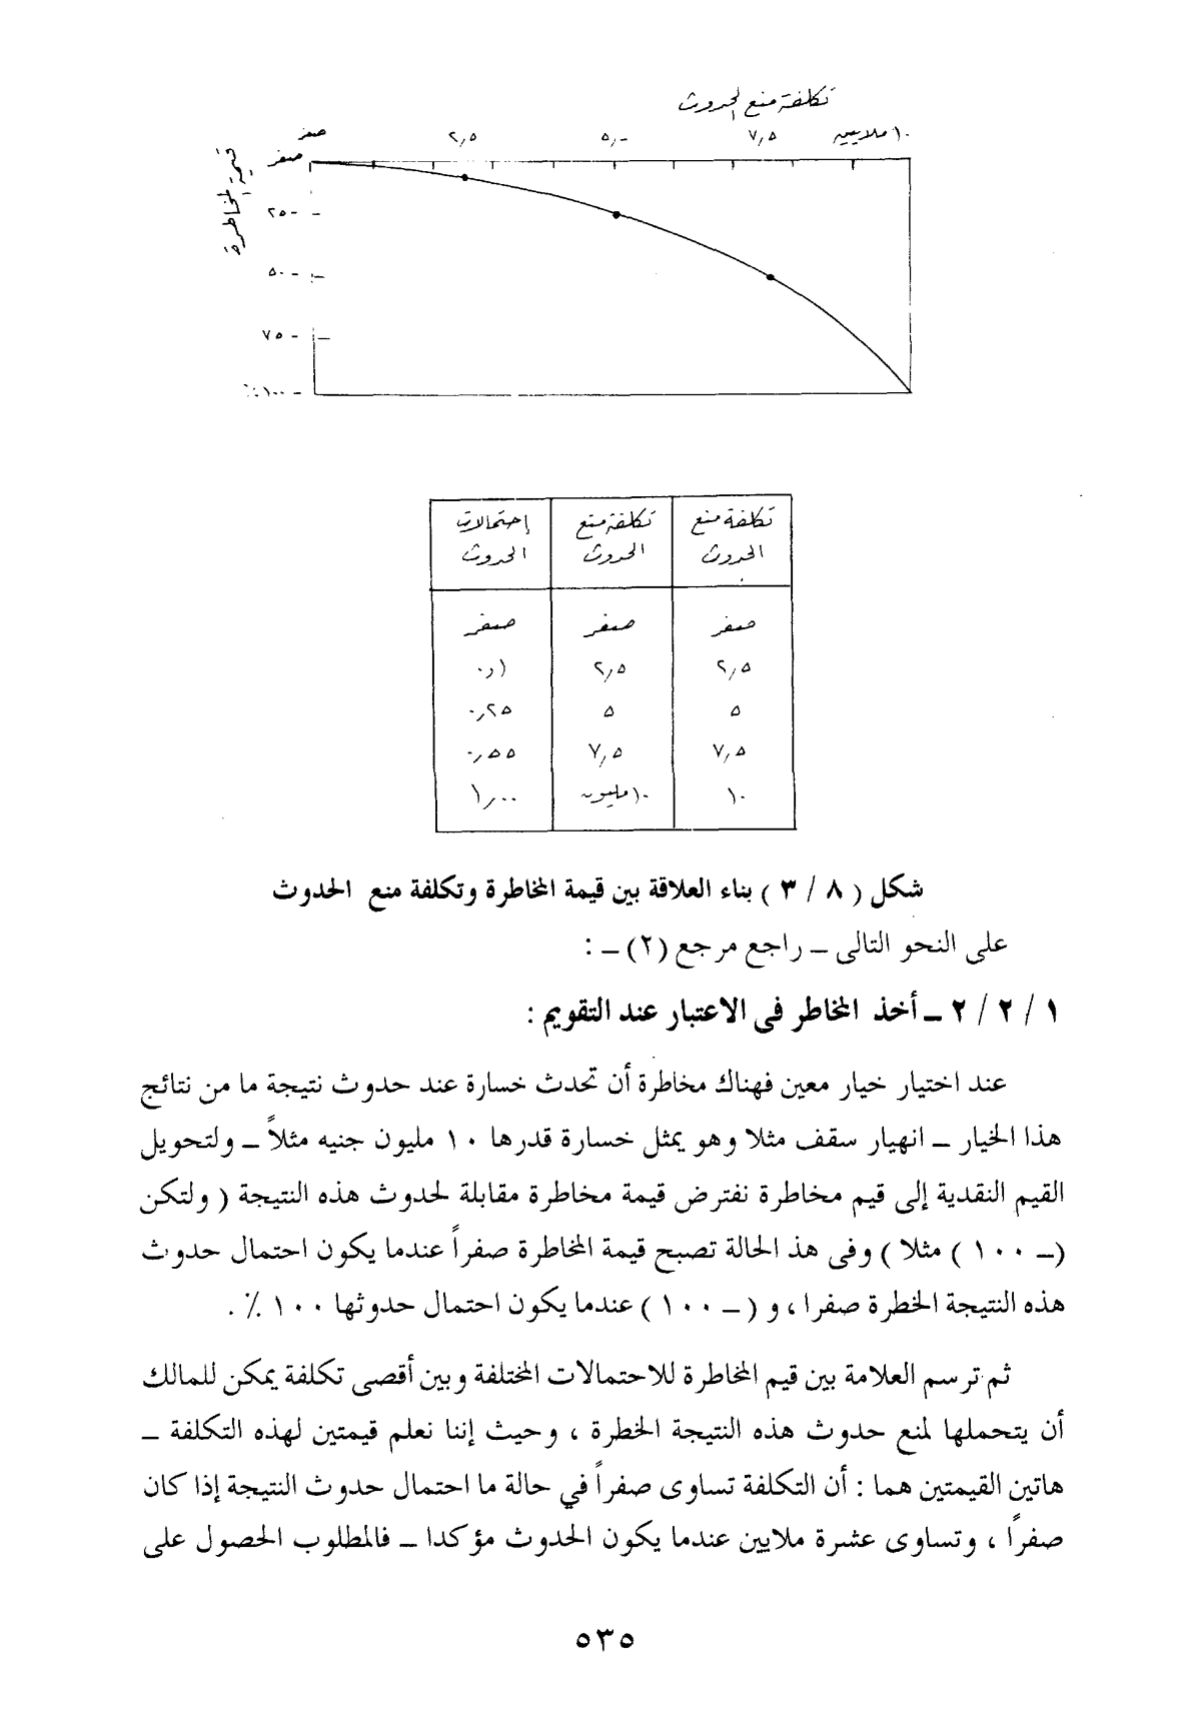 تكلفة منع الحدوث
صفر ٢,٥ ٥,٠ ٧,٥ ١٠ ملايين
قيمة المخاطرة
صفر
٢٥ -
٥٠ -
٧٥ -
١٠٠٪ -
تكلفة منع الحدوث | تكلفة منع الحدوث | إحتمالات الحدوث
صفر | صفر | صفر
٢,٥ | ٢,٥ | ٠,١
٥ | ٥ | ٠,٢٥
٧,٥ | ٧,٥ | ٠,٥٥
١٠ | ١٠ مليون | ١,٠٠
شكل ( ٨ / ٣ ) بناء العلاقة بين قيمة المخاطرة وتكلفة منع الحدوث
على النحو التالى ــ راجع مرجع (٢) ــ :
١ / ٢ / ٢ ــ أخذ المخاطر فى الاعتبار عند التقويم :
عند اختيار خيار معين فهناك مخاطرة أن تحدث خسارة عند حدوث نتيجة ما من نتائج
هذا الخيار ــ انهيار سقف مثلا وهو يمثل خسارة قدرها ١٠ مليون جنيه مثلاً ــ ولتحويل
القيم النقدية إلى قيم مخاطرة نفترض قيمة مخاطرة مقابلة لحدوث هذه النتيجة ( ولتكن
(ــ ١٠٠ ) مثلا ) وفى هذ الحالة تصبح قيمة المخاطرة صفراً عندما يكون احتمال حدوث
هذه النتيجة الخطرة صفرا ، و ( ــ ١٠٠ ) عندما يكون احتمال حدوثها ١٠٠ ٪ .
ثم ترسم العلامة بين قيم المخاطرة للاحتمالات المختلفة وبين أقصى تكلفة يمكن للمالك
أن يتحملها لمنع حدوث هذه النتيجة الخطرة ، وحيث إننا نعلم قيمتين لهذه التكلفة ــ
هاتين القيمتين هما : أن التكلفة تساوى صفراً في حالة ما احتمال حدوث النتيجة إذا كان
صفراً ، وتساوى عشرة ملايين عندما يكون الحدوث مؤكدا ــ فالمطلوب الحصول على
٥٣٥